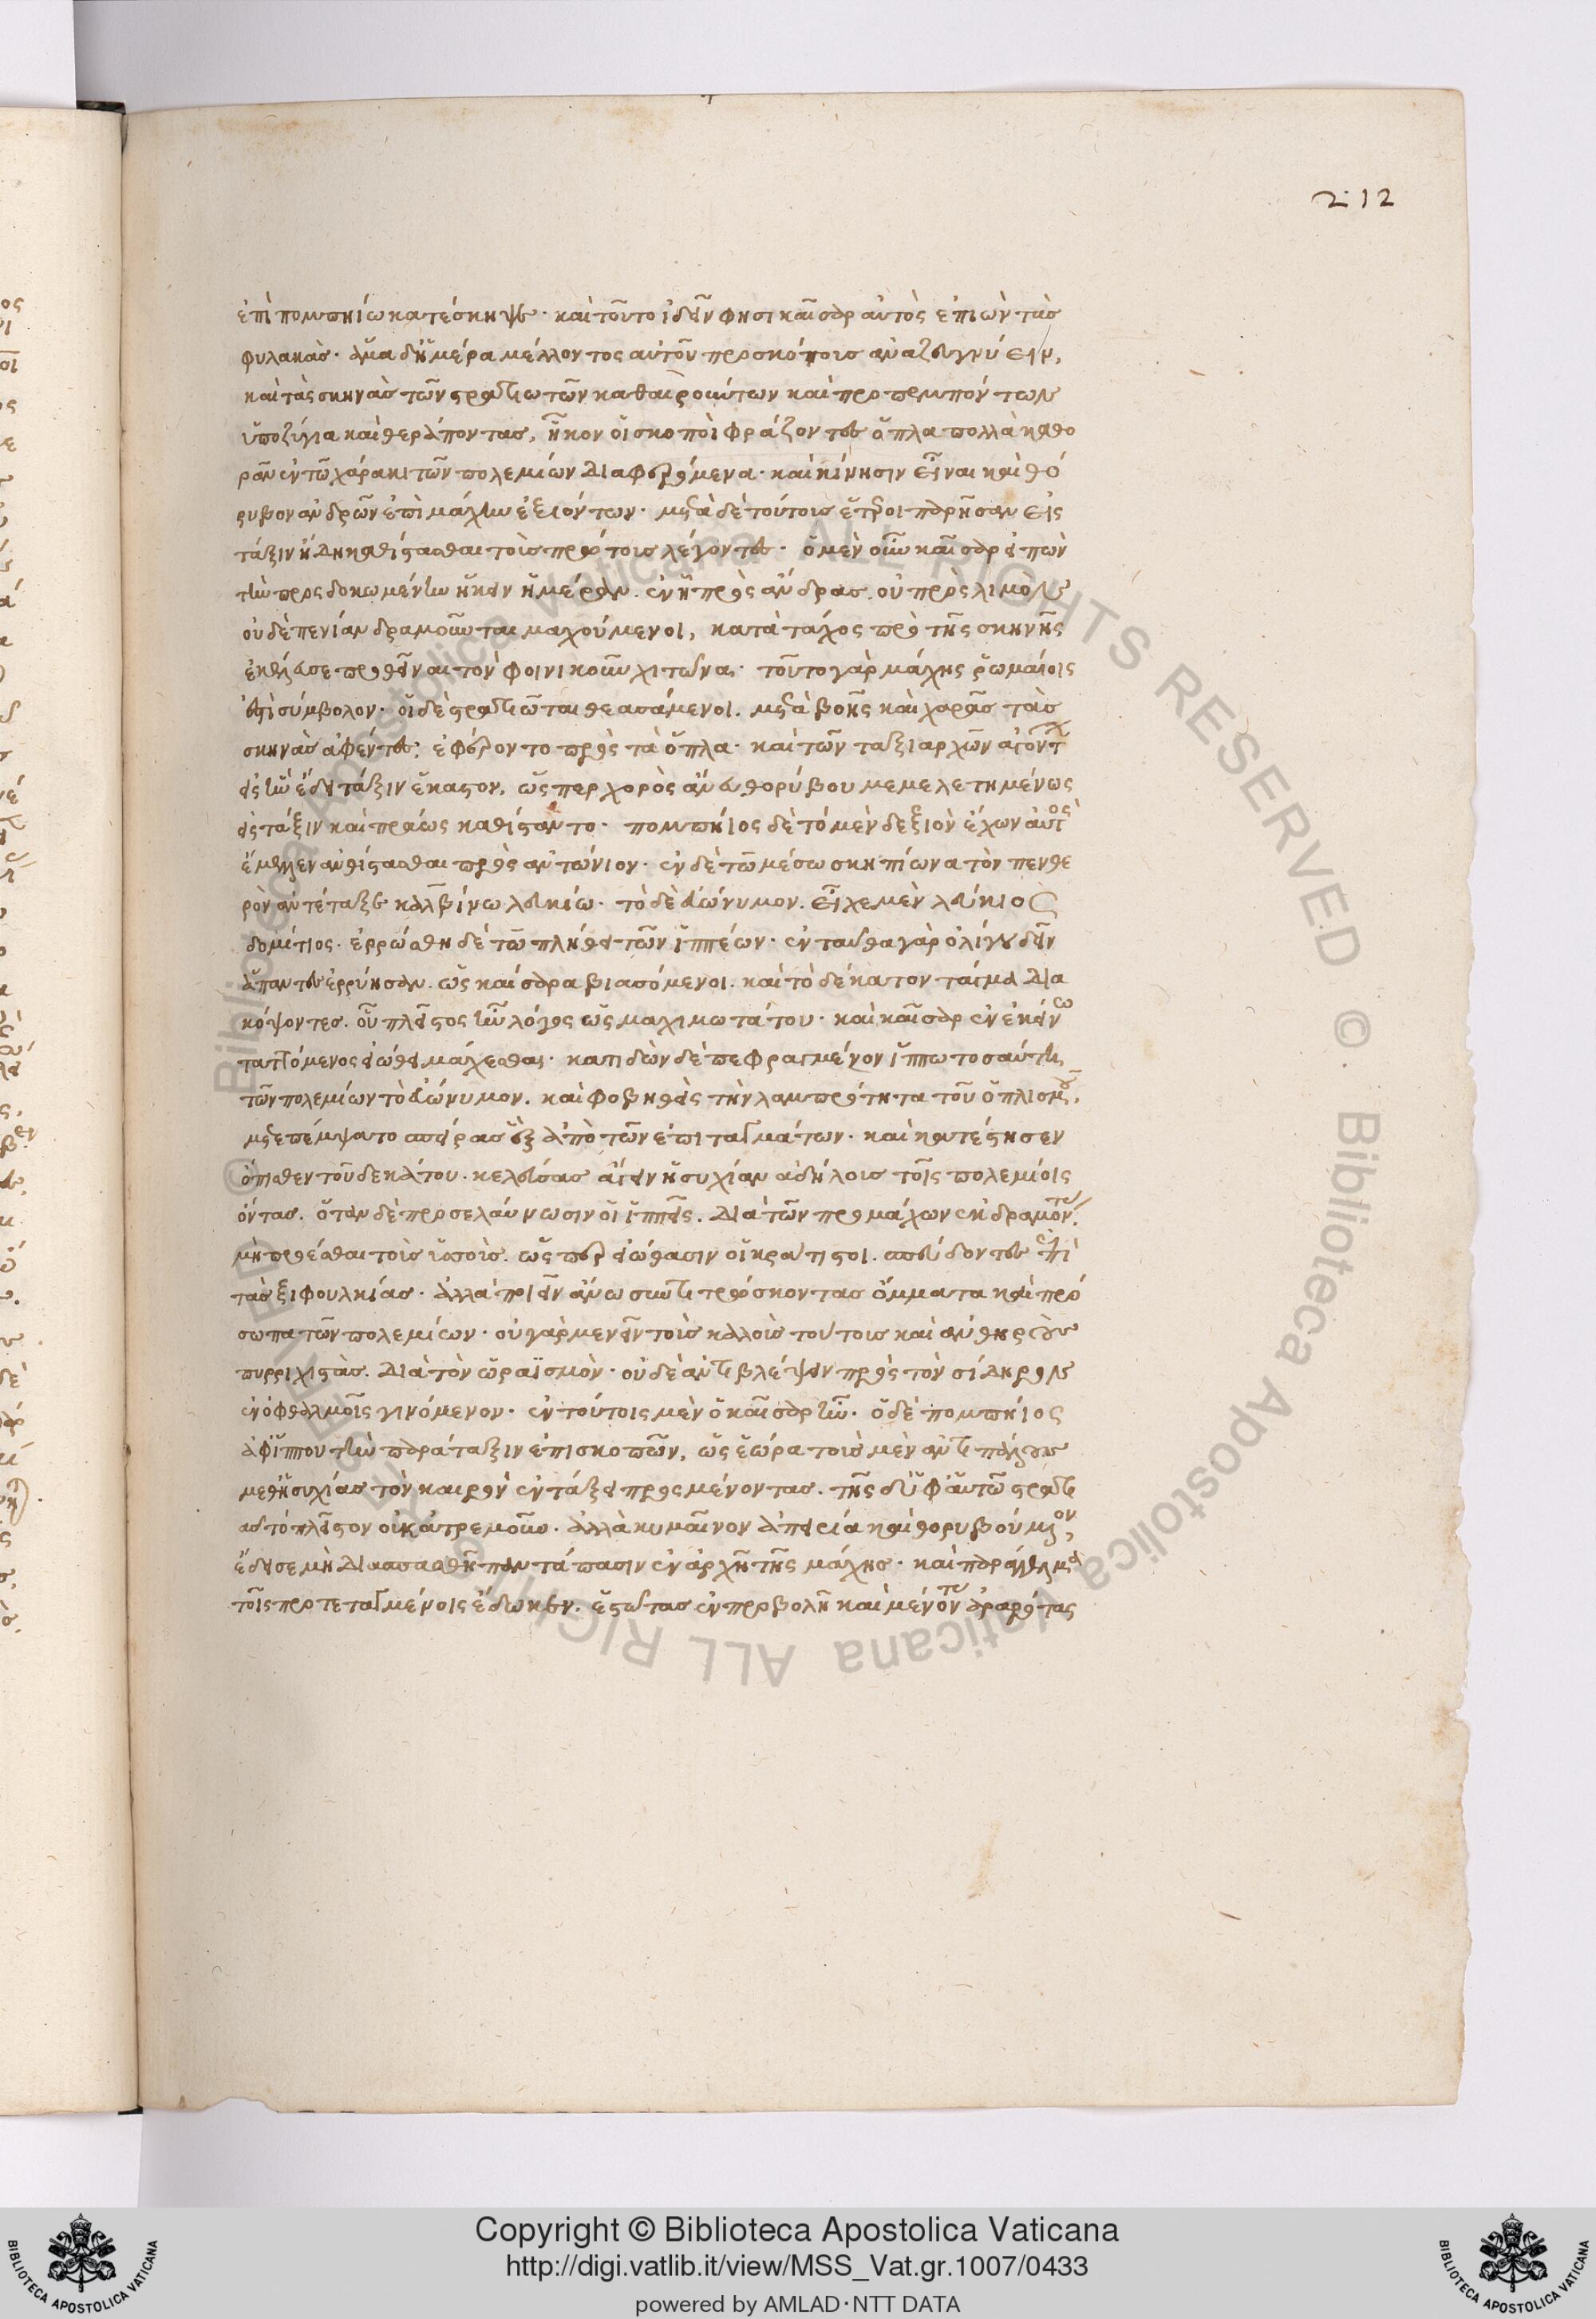 212
ἐπὶ πομπηίω κατέσκηψε· καὶ τοῦτο ἰδεῖν φησι καῖσαρ αὐτὸς ἐπιὼν τὰσ
φυλακὰσ· ἅμα δ' ἡμέρα μέλλοντος αὐτοῦ προσκόποισ ἀναζευγνύειν,
καὶ τὰς σκηνὰσ τῶν στρατιωτῶν καθαιρούντων καὶ προπεμπόντων
ὑποζύγια καὶ θεράποντασ, ἧκον οἱ σκοποὶ φράζοντες ὅπλα πολλὰ καθο
ρᾶν ἐν τῶ χάρακι τῶν πολεμίων διαφερόμενα· καὶ κίνησιν εἶναι καὶ θό
ρυβον ἀνδρῶν ἐπὶ μάχην ἐξιόντων· μετὰ δὲ τούτοισ ἕτεροι παρῆσαν εἰς
τάξιν ἤδη καθίστασθαι τοὶσ πρώτοισ λέγοντες· ὁ μὲν οὖν καῖσαρ εἰπὼν
τὴν προςδοκωμένην ἥκειν ἡμέραν. ἐν ἧ πρὸς ἄνδρασ, οὐ πρὸς λιμὸν
οὐδὲ πενίαν δραμοῦνται μαχούμενοι, κατὰ τάχος πρὸ τῆς σκηνῆς
ἐκέλευσε προθεῖναι τὸν φοινικοῦν χιτῶνα· τοῦτο γὰρ μάχης ῥωμαίοις
ἐστὶ σύμβολον· οἱ δὲ στρατιῶται θεασάμενοι. μετὰ βοῆς καὶ χαρᾶσ τὰσ
σκηνὰσ ἀφέντες· ἐφέροντο πρὸς τὰ ὅπλα· καὶ τῶν ταξιαρχῶν ἀγόντων
εἰς ἣν ἔδει τάξιν ἕκαστον, ὥςπερ χορὸς ἄνευ θορύβου μεμελετημένως
εἰς τάξιν καὶ πράως καθίσταντο· πομπήιος δὲ τὸ μὲν δεξιὸν ἔχων αὐτὸς
ἔμελλεν ἀνθίστασθαι πρὸς ἀντώνιον· ἐν δὲ τῶ μέσω σκηπίωνα τὸν πενθε
ρὸν ἀντέταξε καλβίνω λευκίω· τὸ δὲ εὐώνυμον. εἶχε μὲν λεύκιος
δομίτιος· ἐρρώσθη δὲ τῶ πλήθει τῶν ἱππέων· ἐνταῦθα γὰρ ὀλίγου δεῖν
ἅπαντες ἐρρύησαν. ὡς καίσαρα βιασόμενοι. καὶ τὸ δέκατον τάγμα δια
κόψοντεσ. οὗ πλεῖστος ἦν λόγος ὡς μαχιμωτάτου· καὶ καῖσαρ ἐν ἐκείνω
ταττόμενος εἰώθει μάχεσθαι· κατιδὼν δὲ πεφραγμένον ἵππω τοσαύτη
τῶν πολεμίων τὸ εὐώνυμον. καὶ φοβηθεὶς τὴν λαμπρότητα τοῦ ὁπλισμοῦ,
μετεπέμψατο σπείρασ ἓξ ἀπὸ τῶν ἐπιταγμάτων· καὶ κατέστησεν
ὄπισθεν τοῦ δεκάτου· κελεύσασ ἄγειν ἡσυχίαν ἀδήλουσ τοῖς πολεμίοις
όντασ. ὅταν δὲ προσελαύνωσιν οἱ ἱππεῖς. διὰ τῶν προμάχων ἐκδραμόντες
μὴ προέσθαι τοὺσ ὑσσοὺσ. ὥςπερ εἰώθασιν οἱ κράτιστοι. σπεύδοντες ἐπὶ
τὰσ ξιφουλκίασ· ἀλλὰ παίειν ἄνω συντιτρώσκοντασ ὄμματα καὶ πρό
σωπα τῶν πολεμίων· οὐ γὰρ μενεῖν τοὺσ καλοὺσ τούτουσ καὶ ἀνθηροὺσ
πυρριχιστὰσ. διὰ τὸν ὡραϊσμὸν· οὐδὲ ἀντιβλέψειν πρὸς τὸν σίδηρον
ἐν ὀφθαλμοῖς γινόμενον· ἐν τούτοις μὲν ὁ καῖσαρ ἦν· ὁ δὲ πομπήιος
ἀφ' ἵππου τὴν παράταξιν ἐπισκοπῶν, ὡς ἑώρα τοὺσ μὲν ἀντιπάλουσ
μεθ' ἡσυχίασ τὸν καιρὸν ἐν τάξει προςμένοντασ. τῆς δ' ὑφ' αὑτῶ στρατι
ᾶσ τὸ πλεῖστον οὐκ ἀτρεμοῦν. ἀλλὰ κυμαῖνον ἀπειρία καὶ θορυβούμενον,
ἔδεισε μὴ διασπασθῆ παντάπασιν ἐν ἀρχῆ τῆς μάχησ· καὶ παράγγελμα
τοῖς προτεταγμένοις ἔδωκεν. ἑστῶτασ ἐν προβολῆ καὶ μένοντας ἀραρότας
Copyright © Biblioteca Apostolica Vaticana
http://digi.vatlib.it/view/MSS_Vat.gr.1007/0433
powered by AMLAD·NTT DATA